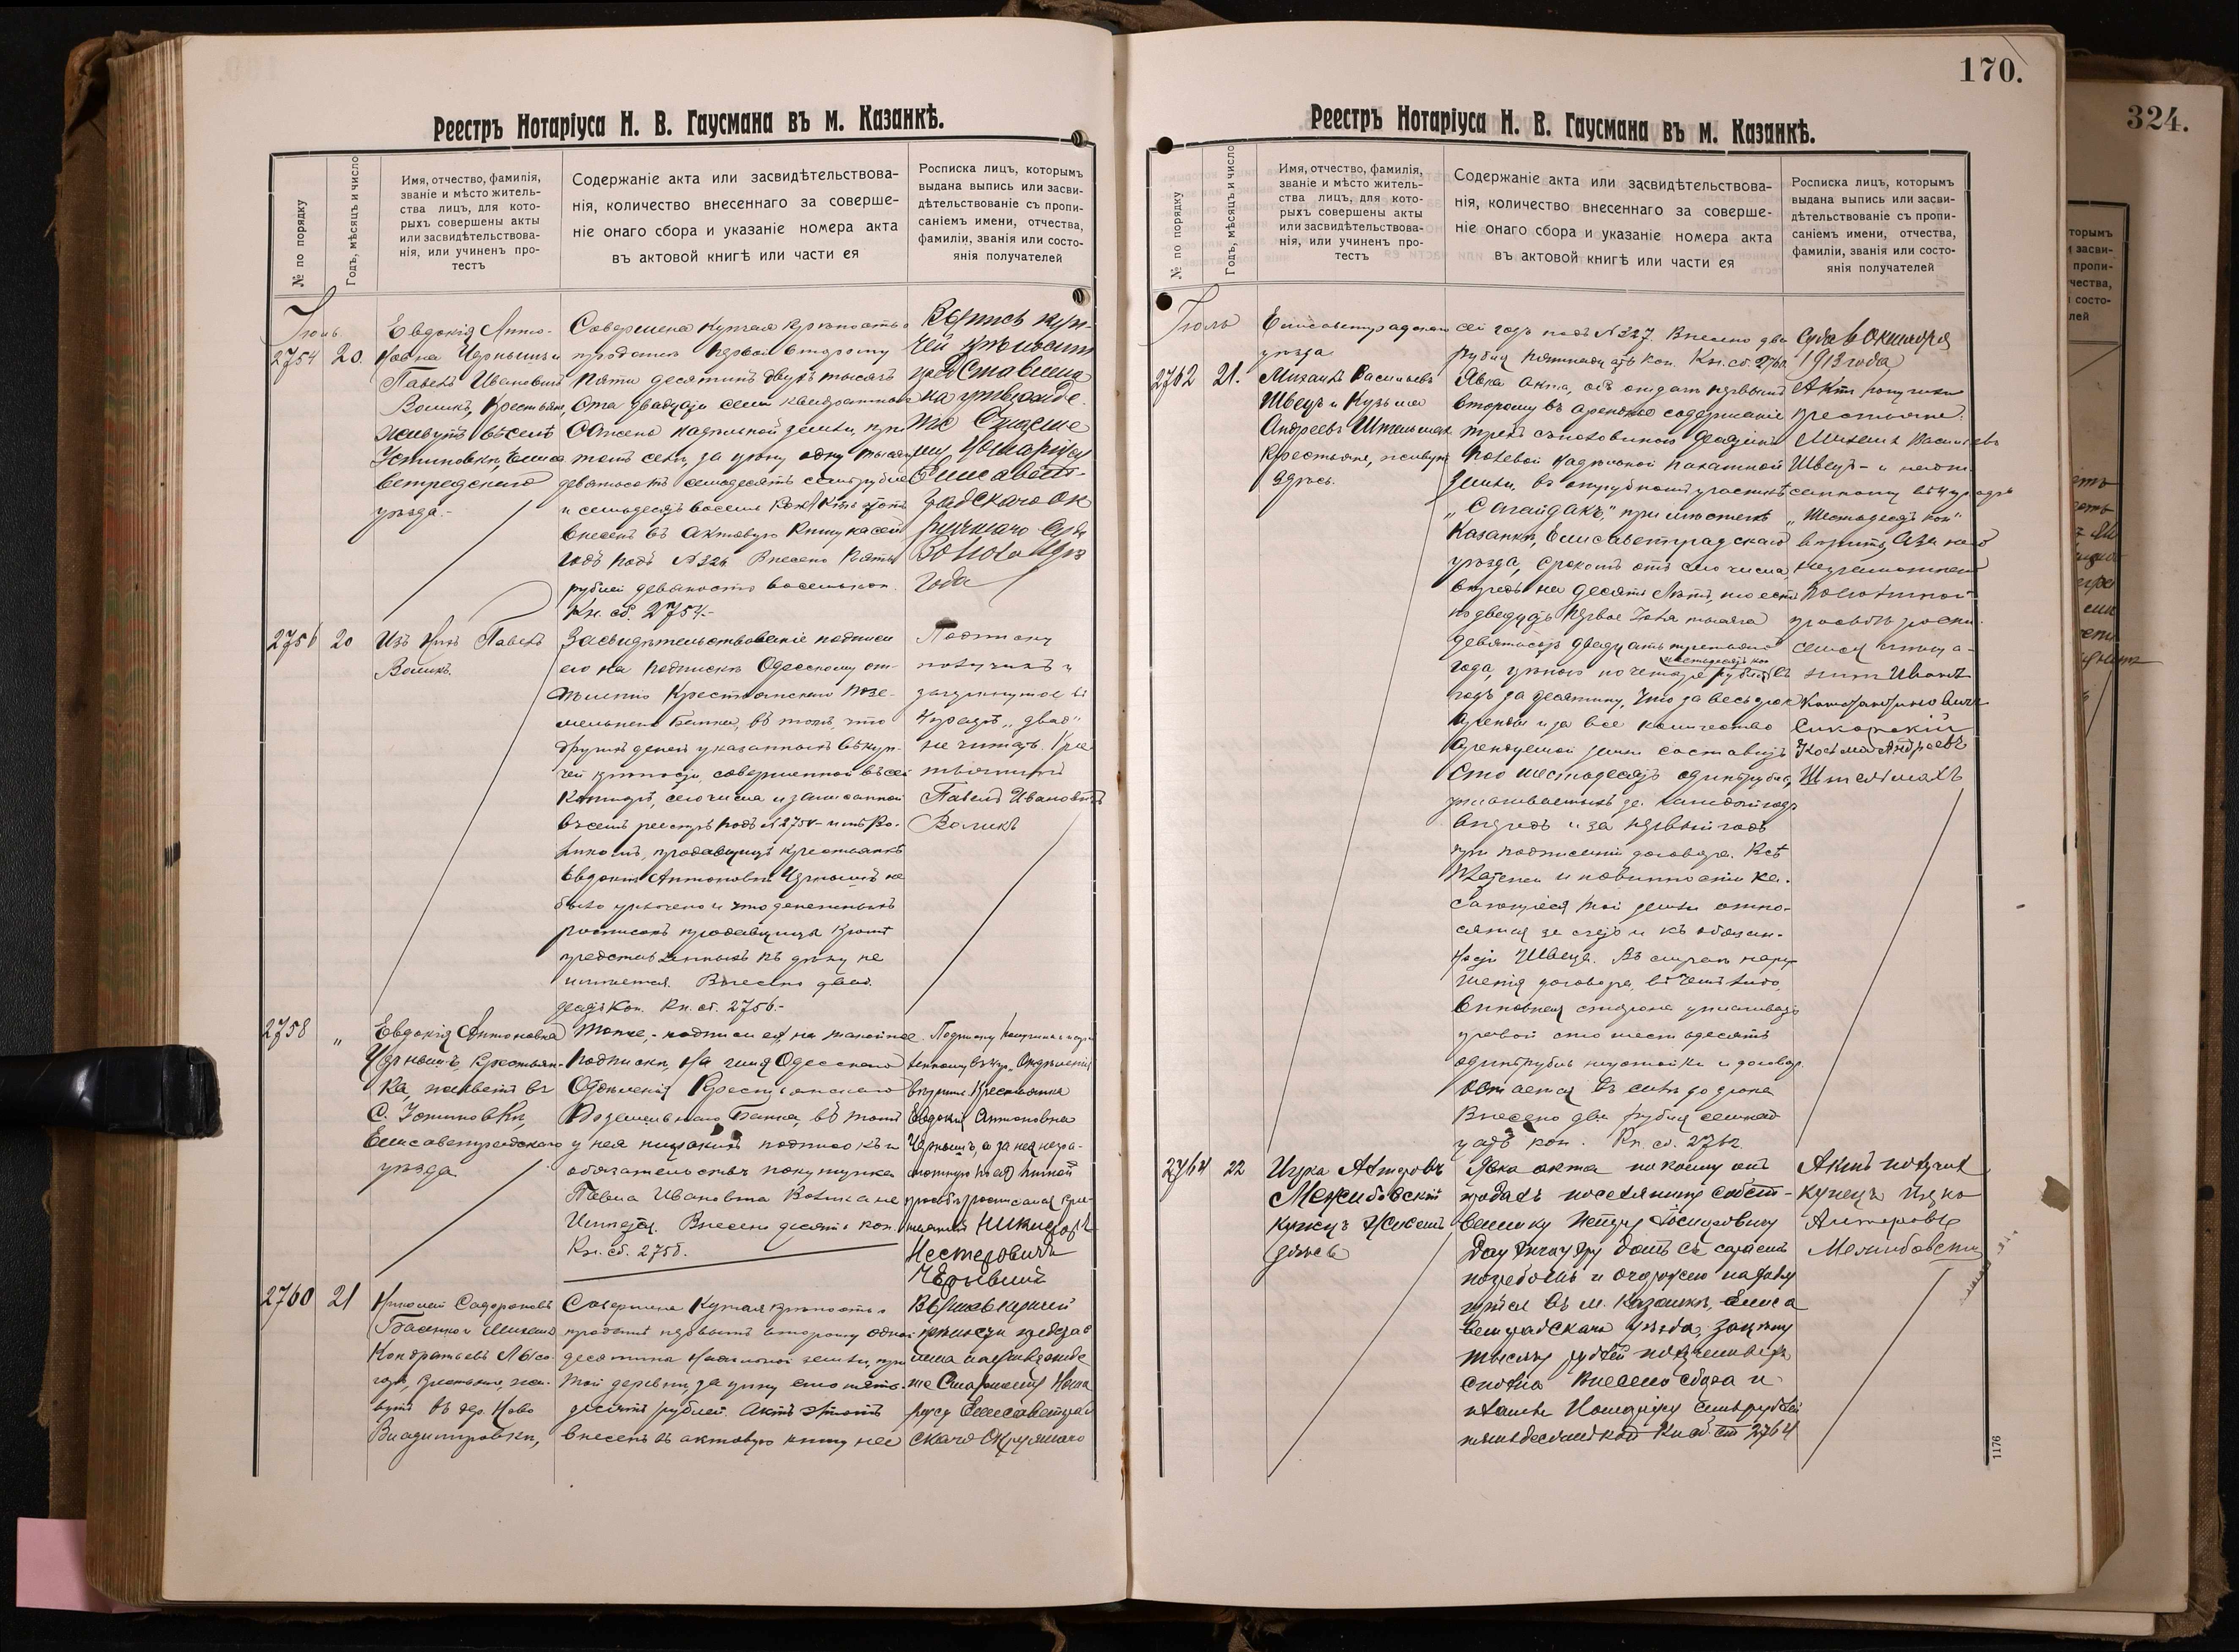 Реестръ Нотаріуса Н. В. Гаусмана въ м. Казанкѣ.
№ по порядку
Годъ, мѣсяцъ и число
Имя, отчество, фамилія,
званіе и мѣсто житель-
ства лицъ, для кото-
рыхъ совершены акты
или засвидѣтельствова-
нія, или учиненъ про-
тестъ
Содержаніе акта или засвидѣтельствова-
нія, количество внесеннаго за соверше-
ніе онаго сбора и указаніе номера акта
въ актовой книгѣ или части ея
Росписка лицъ, которымъ
выдана выпись или засви-
дѣтельствованіе съ пропи-
саніемъ имени, отчества,
фамиліи, званія или состо-
янія получателей
Іюль
2754
20.
Евдокія Анто-
новна Чернышъ и
Павелъ Ивановичъ
Воликъ, крестьяне,
живутъ въ селѣ
Устиновкѣ, Елиса
ветградскаго
уѣзда.-
Совершена купчая крѣпость о
продажѣ первой второму
пяти десятинъ двухъ тысячъ
ста двадцати семи квадратныхъ
сажень надѣльной земли, при
томъ селѣ, за цѣну одну тысячу
девятьсотъ семьдесятъ семь рублей
и семьдесятъ восемь коп. Актъ этотъ
внесенъ въ актовую книгу на сей
годъ подъ № 326 Внесено пять
рублей девяносто восемь коп.
Кн. сб. 2754.-
Выпись куп-
чей крѣпости
представлена
на утвержде
ніе Старше
му Нотаріусу
Елисавет-
градскаго Ок
ружнаго Суда
года
2756
20
Изъ нихъ Павелъ
Воликъ.
Засвидѣтельствованіе подписи
его на подпискѣ Одесскому от-
дѣленію Крестьянскаго Позе-
мельнаго Банка, въ томъ, что
другихъ денегъ указанныхъ въ куп-
чей крѣпости, совершенной въ сей
Конторѣ, сего числа и записанной
въ семъ реестрѣ подъ № 2754 - имъ Во-
ликомъ, продавщицѣ крестьянкѣ
Евдокіи Антоновнѣ Чернышъ не
было уплочено и что денежныхъ
росписокъ продавщицы кромѣ
представленныхъ къ дѣлу не
имѣется. Внесено двад.
цать коп. Кн. сб. 2756.-
Подписку
получилъ и
зачеркнутое въ
4 рядѣ „двад"
не читать. Кре
стьянинъ
Павелъ Ивановичъ
Воликъ
2758
"
Евдокія Антоновна
Чернышъ, крестьян-
ка, живетъ въ
с. Устиновкѣ,
Елисаветградскаго
уѣзда
Тоже,- подписи ея, на такой же
подпискѣ, на имя Одесскаго
Отдѣленія Крестьянскаго
Поземельнаго Банка, въ томъ
у нея никакихъ подписокъ и
обязательствъ покупщика
Павла Ивановича Волика не
имѣется. Внесено десять коп.
Кн. сб. 2758.
вѣрить. Крестьянка
Евдокія Антоновна
Чернышъ, а за нея негра-
мотную по ея личной
просьбѣ росписался кре-
стьянинъ Никифоръ
Нестеровичъ
2760
21
Николай Сидоровъ
Басенко и Михаилъ
Кондратьевъ Лысо-
горъ, крестьяне, жи-
вутъ въ дер. Ново
Владимировкѣ,
Совершена купчая крѣпость о
продажѣ первымъ второму одной
десятины надѣльной земли, при
той деревнѣ, за цѣну сто пять-
десятъ рублей. Актъ этотъ
внесенъ въ актовую книгу на с
Выпись купчей
крѣпости представ
лена на утвержде
ніе Старшему Нота
ріусу Елисаветград
скаго Окружнаго
170.
Реестръ Нотаріуса Н. В. Гаусмана въ м. Казанкѣ.
№ по порядку
Годъ, мѣсяцъ и число
Имя, отчество, фамилія,
званіе и мѣсто житель-
ства лицъ, для кото-
рыхъ совершены акты
или засвидѣтельствова-
нія, или учиненъ про-
тестъ
Содержаніе акта или засвидѣтельствова-
нія, количество внесеннаго за соверше-
ніе онаго сбора и указаніе номера акта
въ актовой книгѣ или части ея
Росписка лицъ, которымъ
выдана выпись или засви-
дѣтельствованіе съ пропи-
саніемъ имени, отчества,
фамиліи, званія или состо-
янія получателей
Іюль
Елисаветградскаго
уѣзда
сей годъ подъ № 327. Внесено два
рубля пятнадцать коп. Кн. сб. 2760
Суда
1913 года
2762
21.
Михаилъ Васильевъ
Швецъ и Кузьма
Андреевъ Штельмахъ
крестьяне, живутъ
здѣсь.
Явка акта, объ отдачѣ первымъ
второму въ арендное содержаніе
трехъ съ половиною десятинъ
полевой надѣльной пахатной
земли, въ отрубномъ участкѣ
„Сагайдакъ," при мѣстечкѣ
Казанкѣ, Елисаветградскаго
уѣзда, срокомъ отъ сего числа,
впредь на десять лѣтъ, то есть
по двадцать первое Іюля тысяча
девятьсотъ двадцать третьяго
года, цѣною по четыре рубля въ
шестьдесятъ коп
годъ за десятину, что за весь срок
аренды и за все количество
арендуемой земли составитъ
сто шестьдесятъ одинъ рубль,
уплачиваемыхъ за каждый годъ
впередъ и за первый годъ
при подписаніи договора. Всѣ
платежи и повинности ка-
сающіеся той земли отно-
сятся за счетъ и къ обязан-
ности Швеца. Въ случаѣ нару-
шенія договора, въ чемъ либо,
виновная сторона уплачиваетъ
правой сто шестьдесятъ
одинъ рубль неустойки и договор
остается въ силѣ до срока
Внесено два рубля семнад
цать коп. Кн. сб. 2762
Актъ получили
крестьяне:
Михаилъ Васильевъ
Швецъ - и
„Шестьдесятъ коп"
вѣрить, а за него
неграмотнаго
по личной
просьбѣ роспи
сался
Иванъ
Константиновичъ
Сикорскій
Косьма Андреевъ
Штельмахъ
2764
22
Ицка Антеровъ
Межибовскій
купецъ живетъ
здѣсь
Явка акта по коему онъ
продалъ поселянину собст-
веннику Петру Іосифовичу
домъ съ сараемъ
погребомъ и
въ м. Казанкѣ, Елиса
ветградскаго уѣзда, за
тысячу рублей
Внесено сбора и
платы Нотаріусу семь рублей
пятьдесятъ коп Кн. сб. ст 2764
Актъ получилъ
купецъ Ицко
Антеровъ
Межибовскій
1176
324.
торымъ
и засви-
пропи-
чества,
и состо-
лей